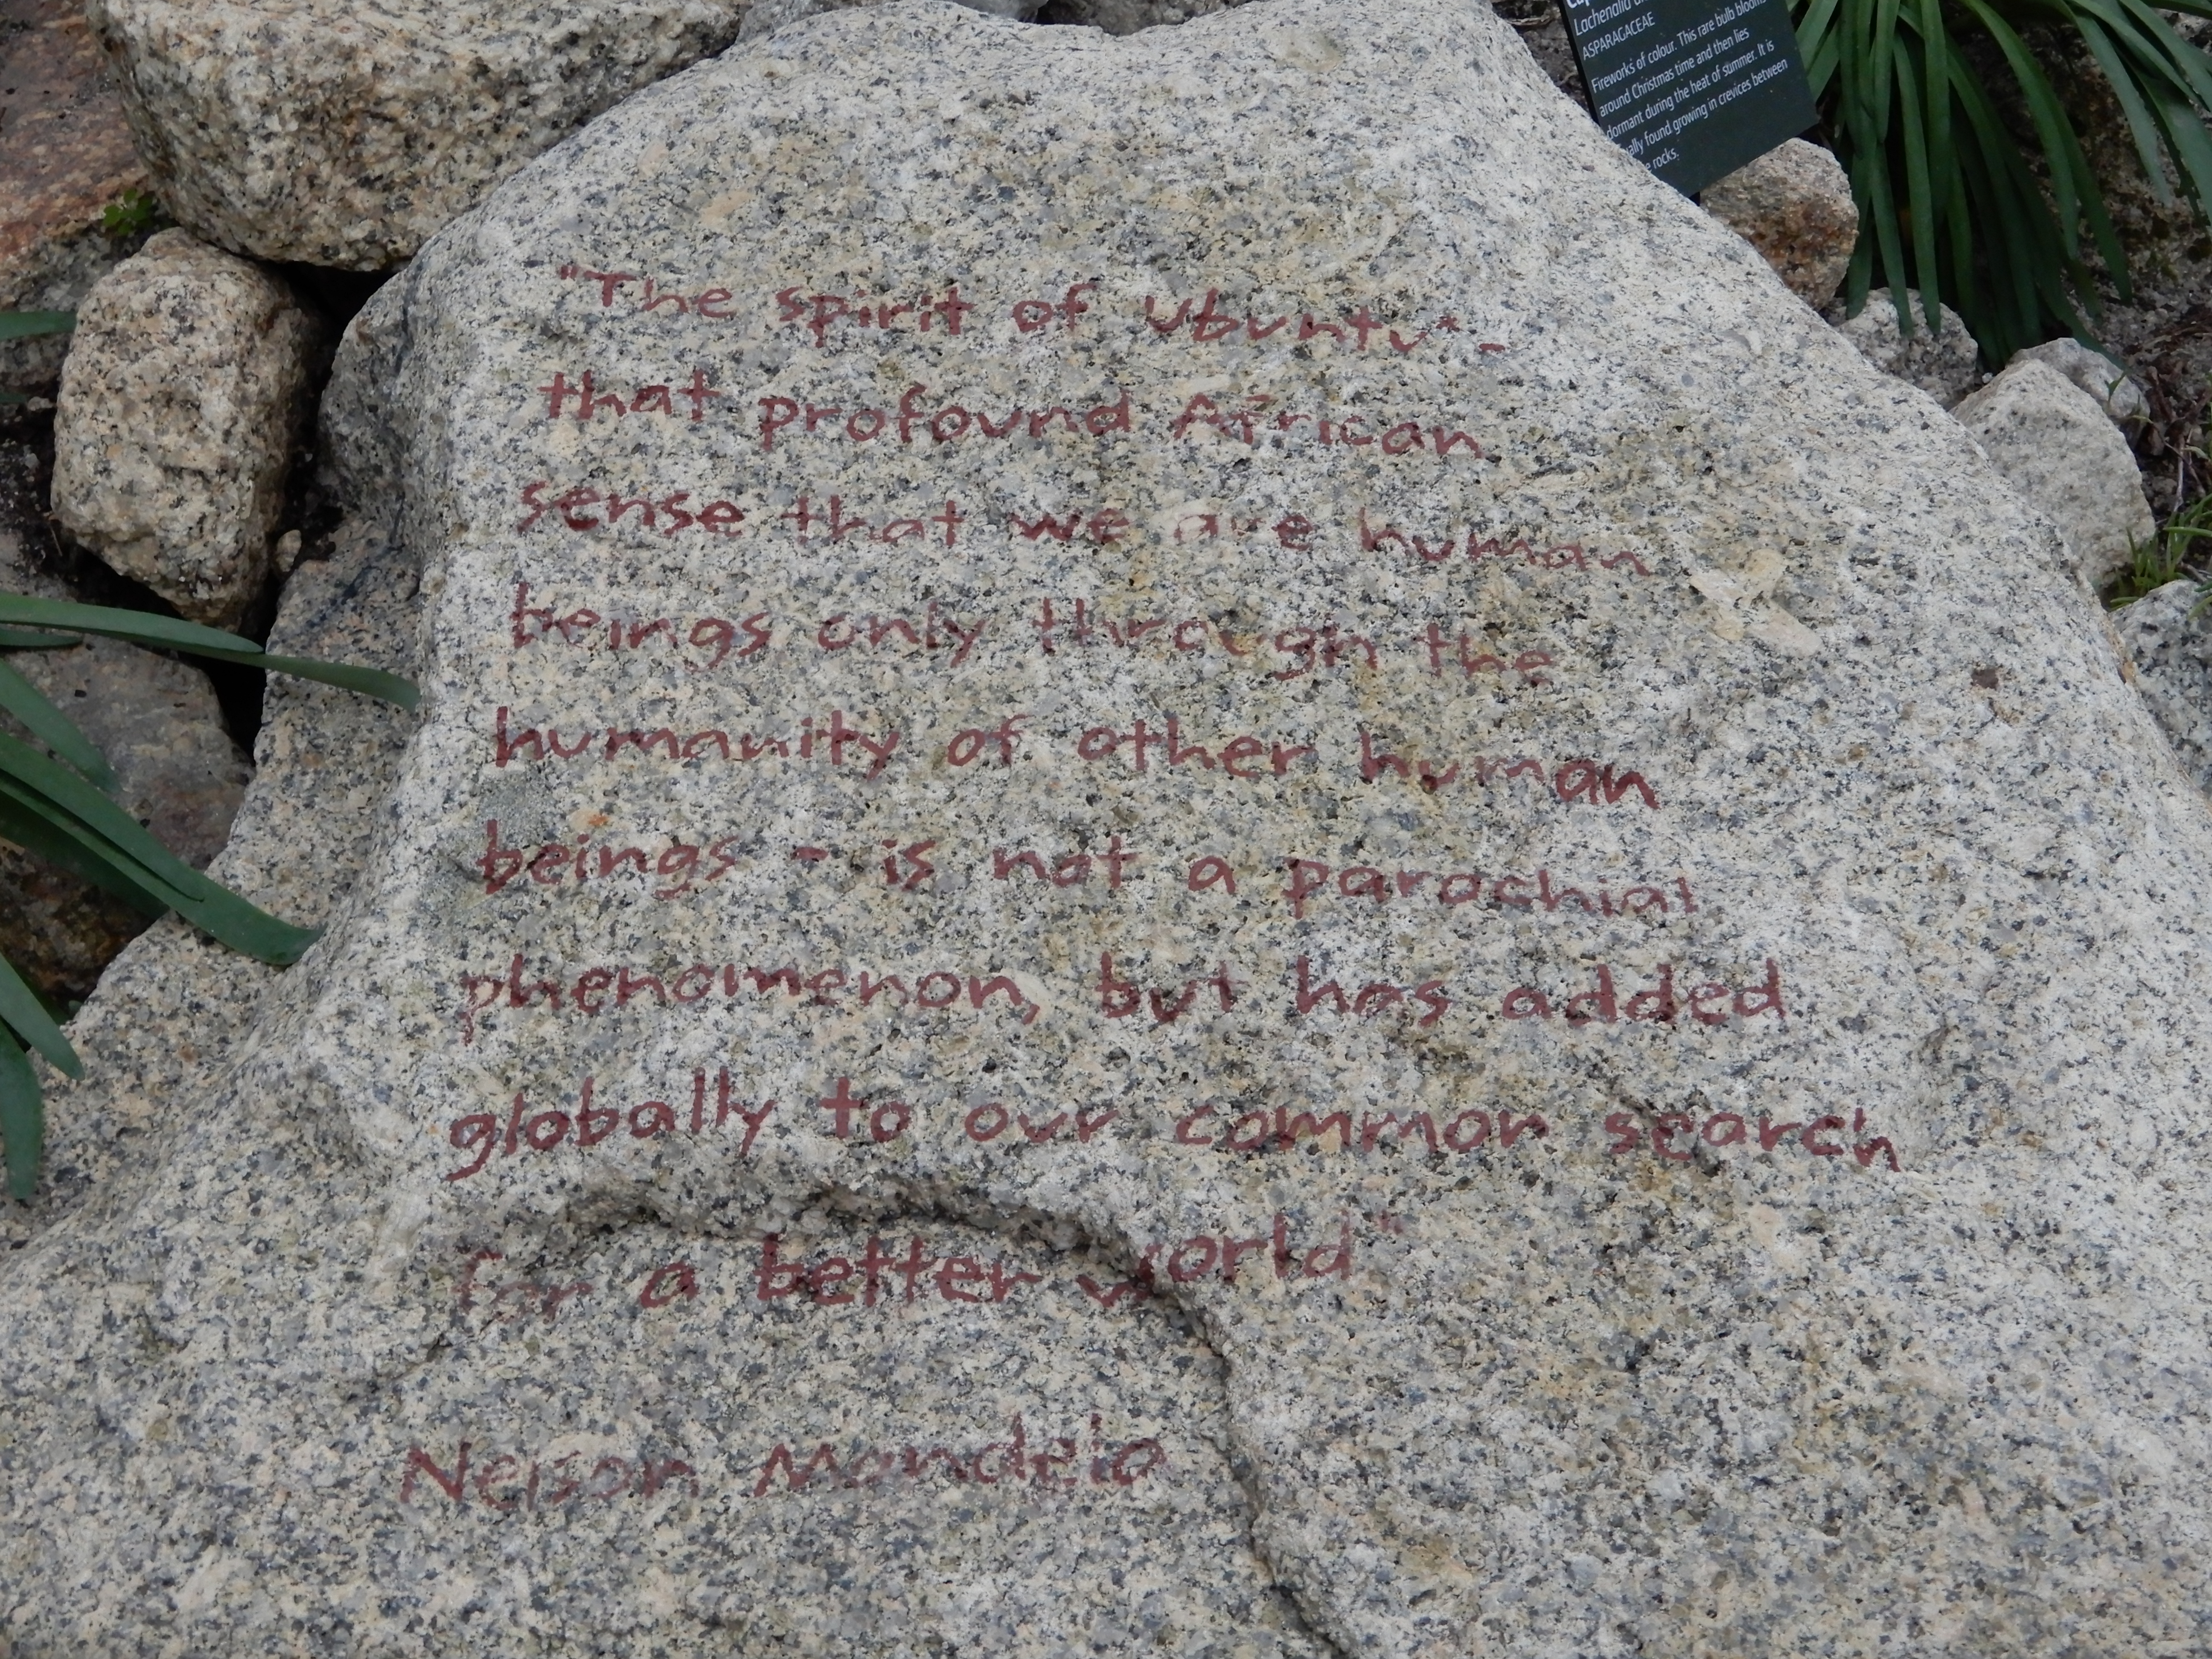 Lachenalia
ASPARAGACEAE
Fireworks of colour. This rare bulb blooms
around Christmas time and then lies
dormant during the heat of summer. It is
found growing in crevices between
rocks.
"The spirit of Ubuntu* -
that profound African
sense that we are human
beings only through the
humanity of other human
beings - is not a parochial
phenomenon, but has added
globally to our common search
for a better world"
Nelson Mandela